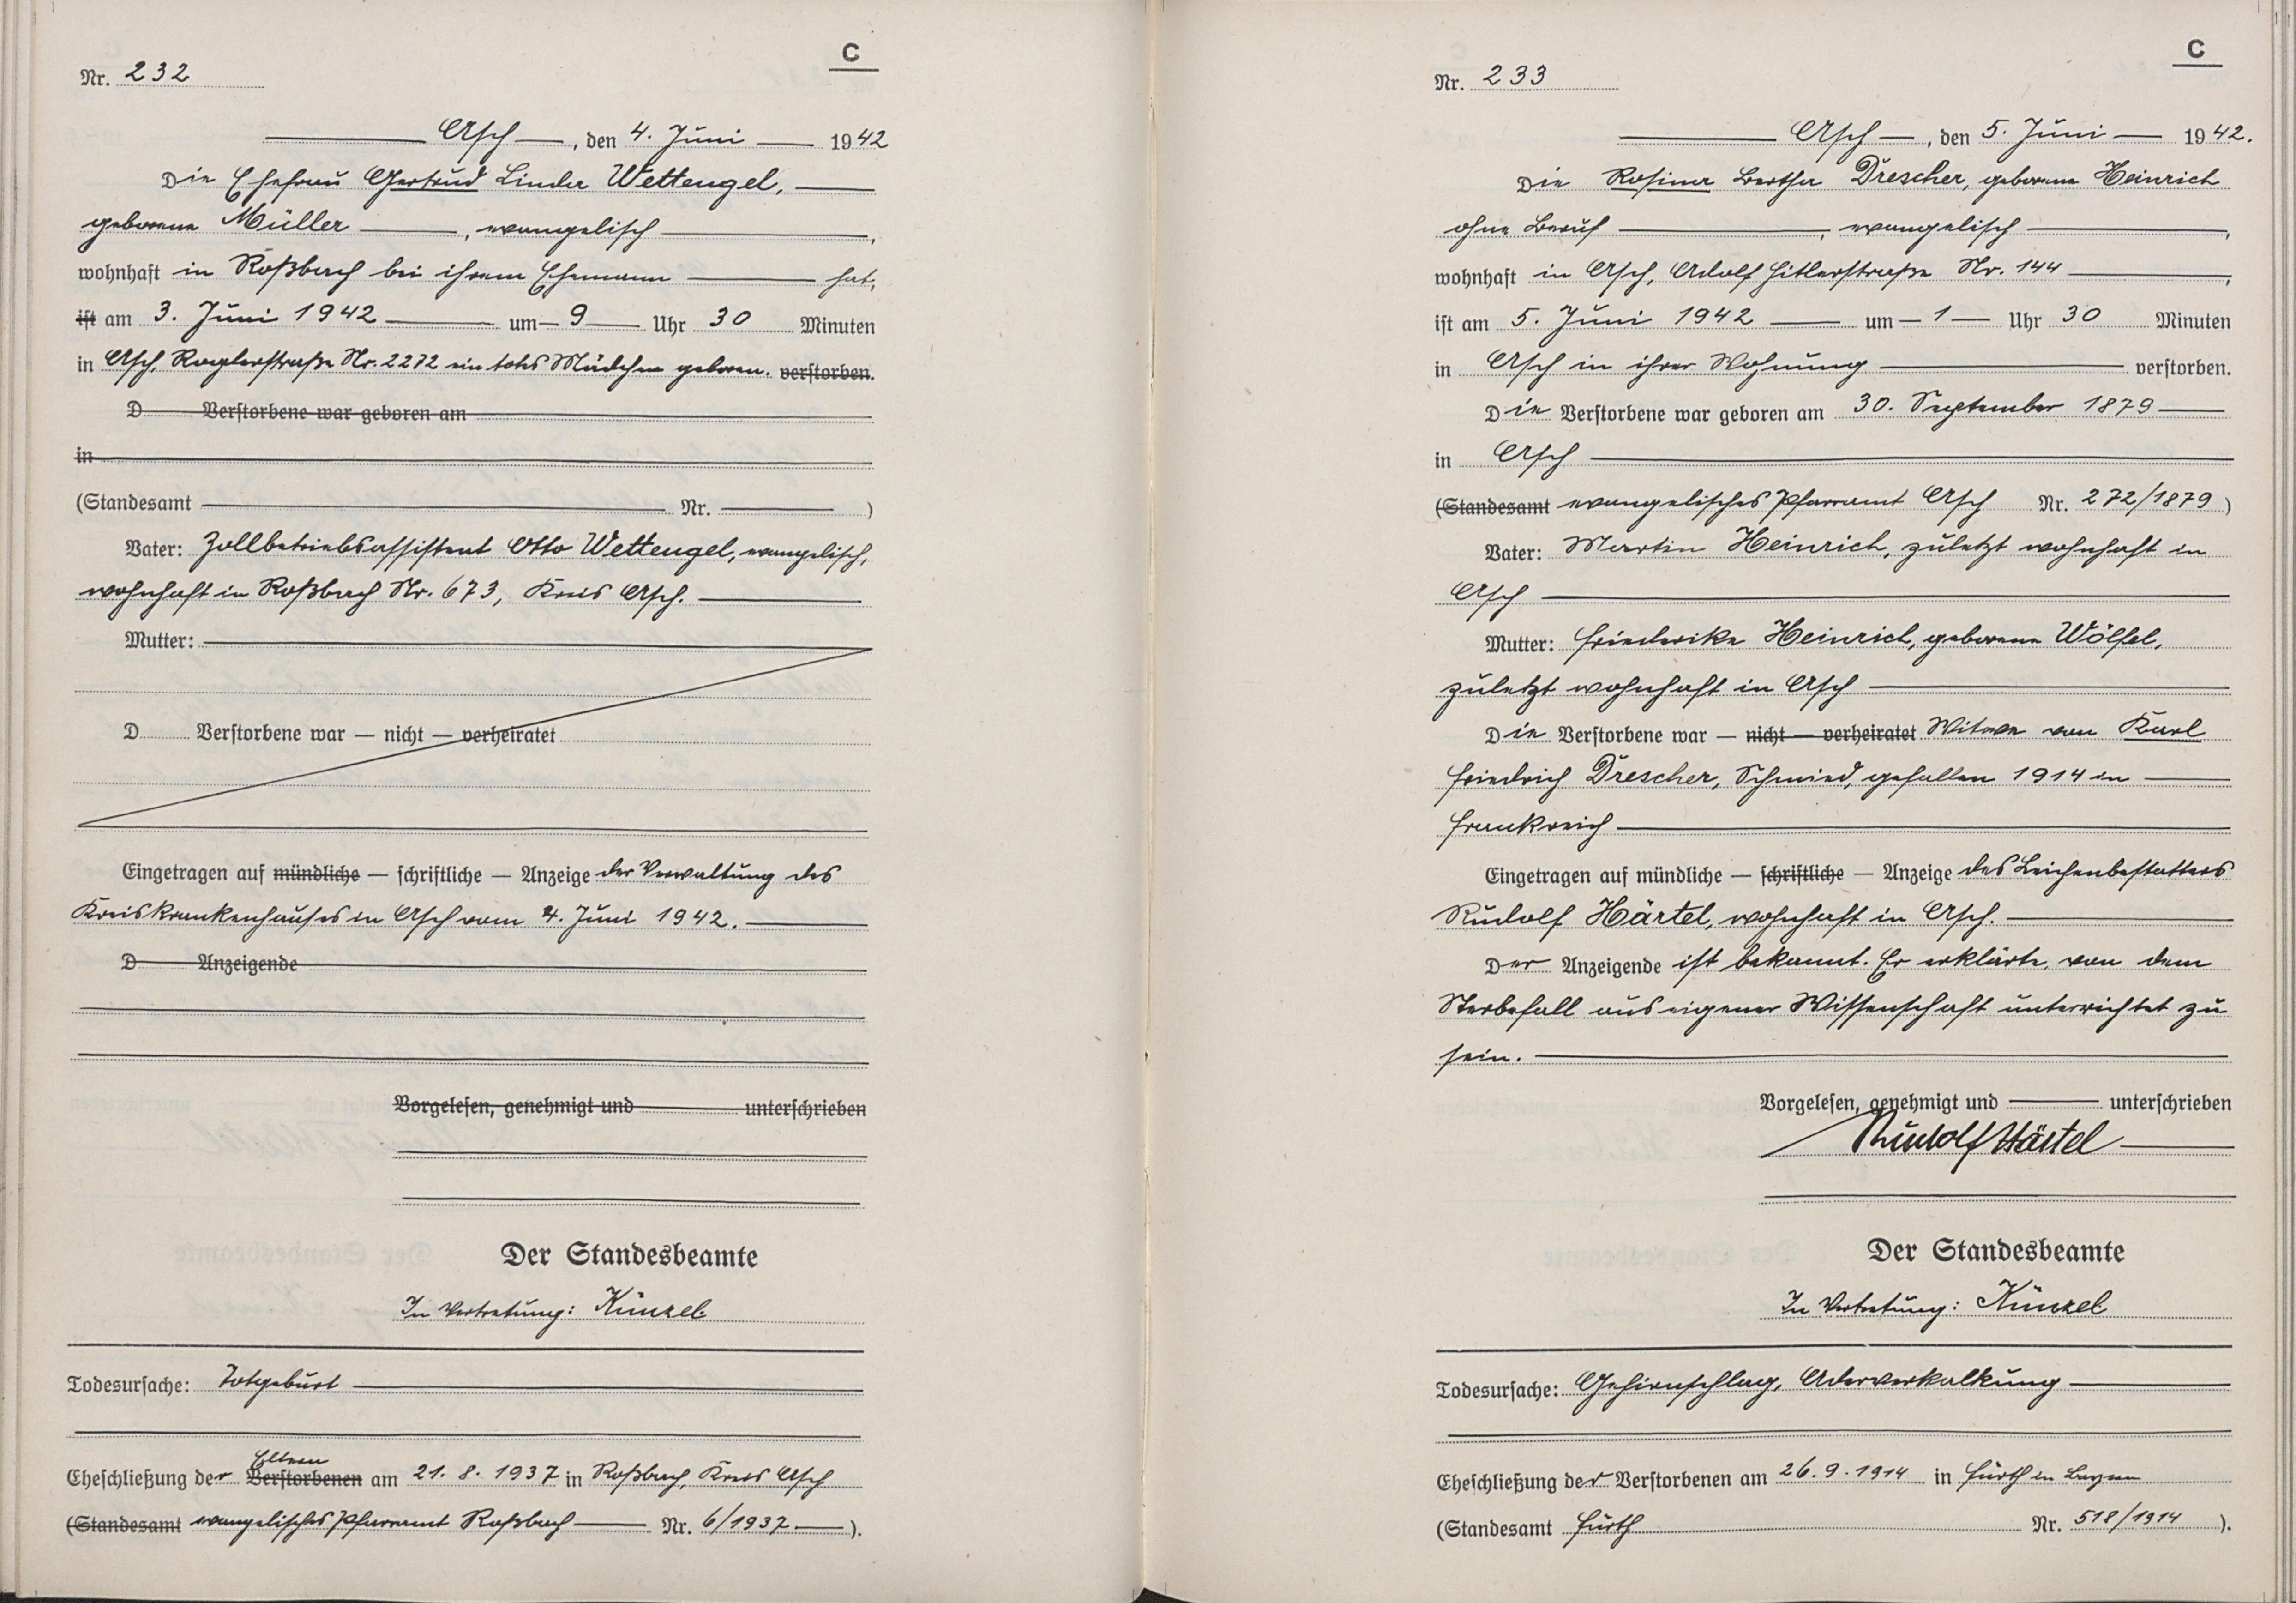 C
Nr. 232
Asch, den 4. Juni 1942
Die Ehefrau Gertrud Linda Wettengel,
geborene Müller, evangelisch,
wohnhaft in Roßbach bei ihrem Ehemann hat,
ist am 3. Juni 1942 um 9 Uhr 30 Minuten
in Asch, Roglerstraße Nr. 2272 ein totes Mädchen geboren. verstorben.
D Verstorbene war geboren am
in
(Standesamt Nr. )
Vater: Zollbetriebsassistent Otto Wettengel, evangelisch,
wohnhaft in Roßbach Nr. 673, Kreis Asch.
Mutter:
D Verstorbene war — nicht — verheiratet
Eingetragen auf mündliche — schriftliche — Anzeige der Verwaltung des
Kreiskrankenhauses in Asch vom 4. Juni 1942.
D Anzeigende
Vorgelesen, genehmigt und unterschrieben
Der Standesbeamte
In Vertretung: Künzel.
Todesursache: Totgeburt
Eltern
Eheschließung der Verstorbenen am 21. 8. 1937 in Roßbach, Kreis Asch
(Standesamt evangelisches Pfarramt Roßbach Nr. 6/1937).
C
Nr. 233
Asch, den 5. Juni 1942.
Die Rosina Bertha Drescher, geborene Heinrich
ohne Beruf, evangelisch,
wohnhaft in Asch, Adolf Hitlerstraße Nr. 144,
ist am 5. Juni 1942 um 1 Uhr 30 Minuten
in Asch in ihrer Wohnung verstorben.
Die Verstorbene war geboren am 30. September 1879
in Asch
(Standesamt evangelisches Pfarramt Asch Nr. 272/1879)
Vater: Martin Heinrich, zuletzt wohnhaft in
Asch
Mutter: Friederike Heinrich, geborene Wölfel,
zuletzt wohnhaft in Asch
Die Verstorbene war — nicht — verheiratet Witwe von Karl
Friedrich Drescher, Schmied, gefallen 1914 in
Frankreich
Eingetragen auf mündliche — schriftliche — Anzeige des Leichenbestatters
Rudolf Härtel, wohnhaft in Asch.
Der Anzeigende ist bekannt. Er erklärte, von dem
Sterbefall aus eigener Wissenschaft unterrichtet zu
sein.
Vorgelesen, genehmigt und unterschrieben
Rudolf Härtel
Der Standesbeamte
In Vertretung: Künzel
Todesursache: Gehirnschlag, Aderverkalkung
Eheschließung der Verstorbenen am 26. 9. 1914 in Fürth in Bayern
(Standesamt Fürth Nr. 518/1914).